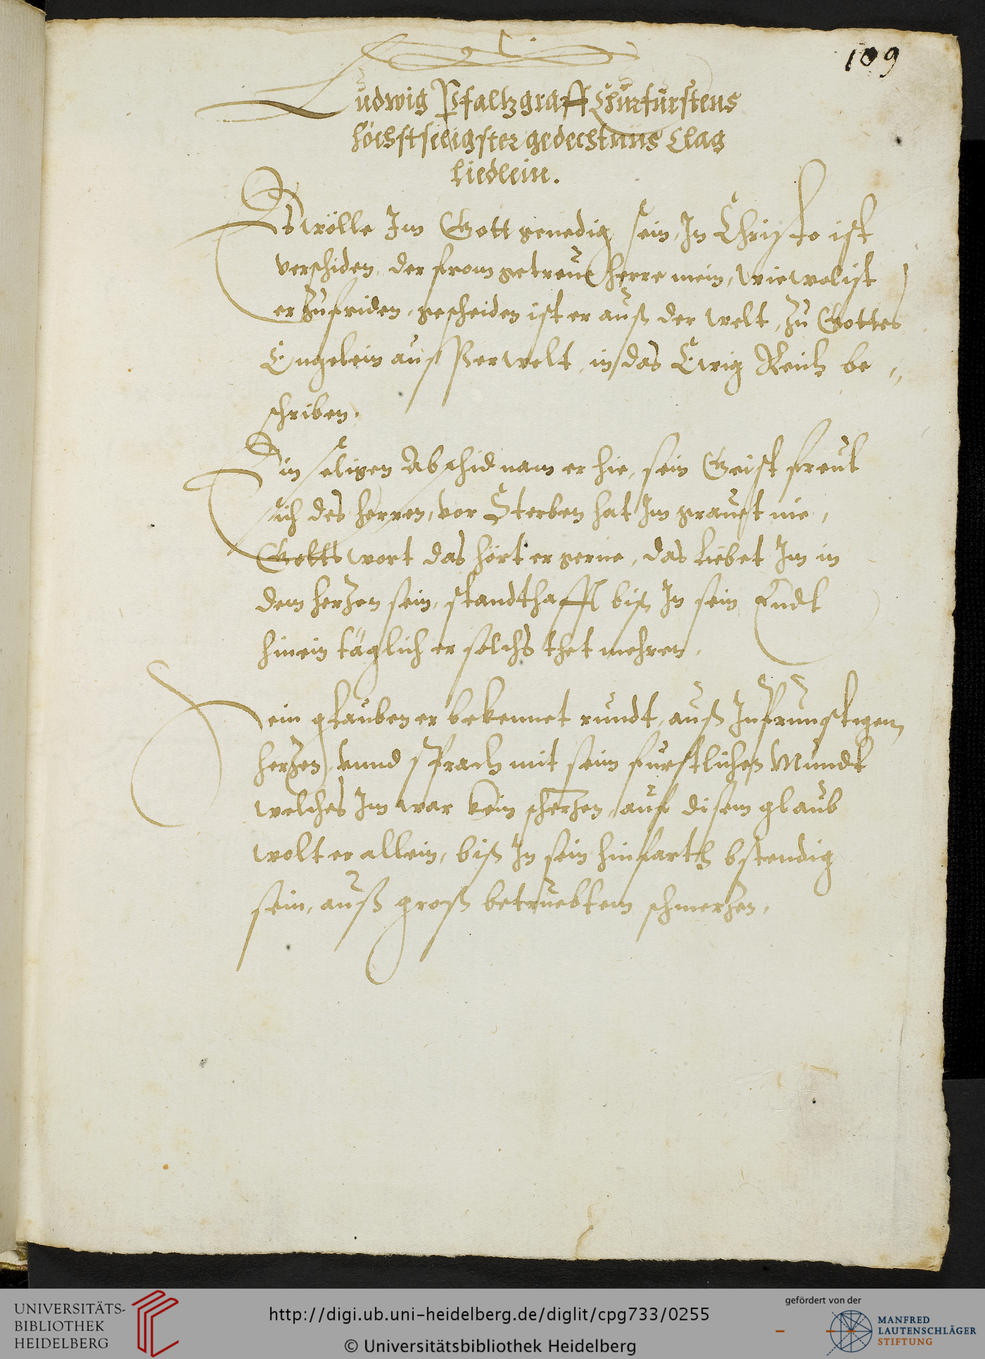 109
Ludwig Pfaltzgraff Churfürstens
höchstseligster gedechtnus Clag
liedlein.
Es wölle Im Gott genedig sein, In Christo ist
verschiden, der from getreue herre mein, wie wol ist
er zufriden, gescheiden ist er auß der welt, zu Gottes
Engelein außerwelt, in das Ewig Reich be„
schriben.
Ein seligen Abschid nam er hie, sein Geist freut
sich des herren, vor Sterben hat Im graust nie,
Gotts wort das hört er gerne, das liebet Im in
dem herzen sein, standthafft biß In sein Endt
hinein täglich er solchs thet mehren.
Sein glauben er bekennet rundt, auß Inbrunstigem
herzen, vnnd sprach mit seim furstlichen Mundt
welches Im war kein scherzen, auf disem glaub
wolt er allein, biß In sein hinfarth bstendig
sein, auß groß betruebtem schmerzen.
UNIVERSITÄTS-
BIBLIOTHEK
HEIDELBERG
http://digi.ub.uni-heidelberg.de/diglit/cpg733/0255
© Universitätsbibliothek Heidelberg
gefördert von der
MANFRED
LAUTENSCHLÄGER
STIFTUNG